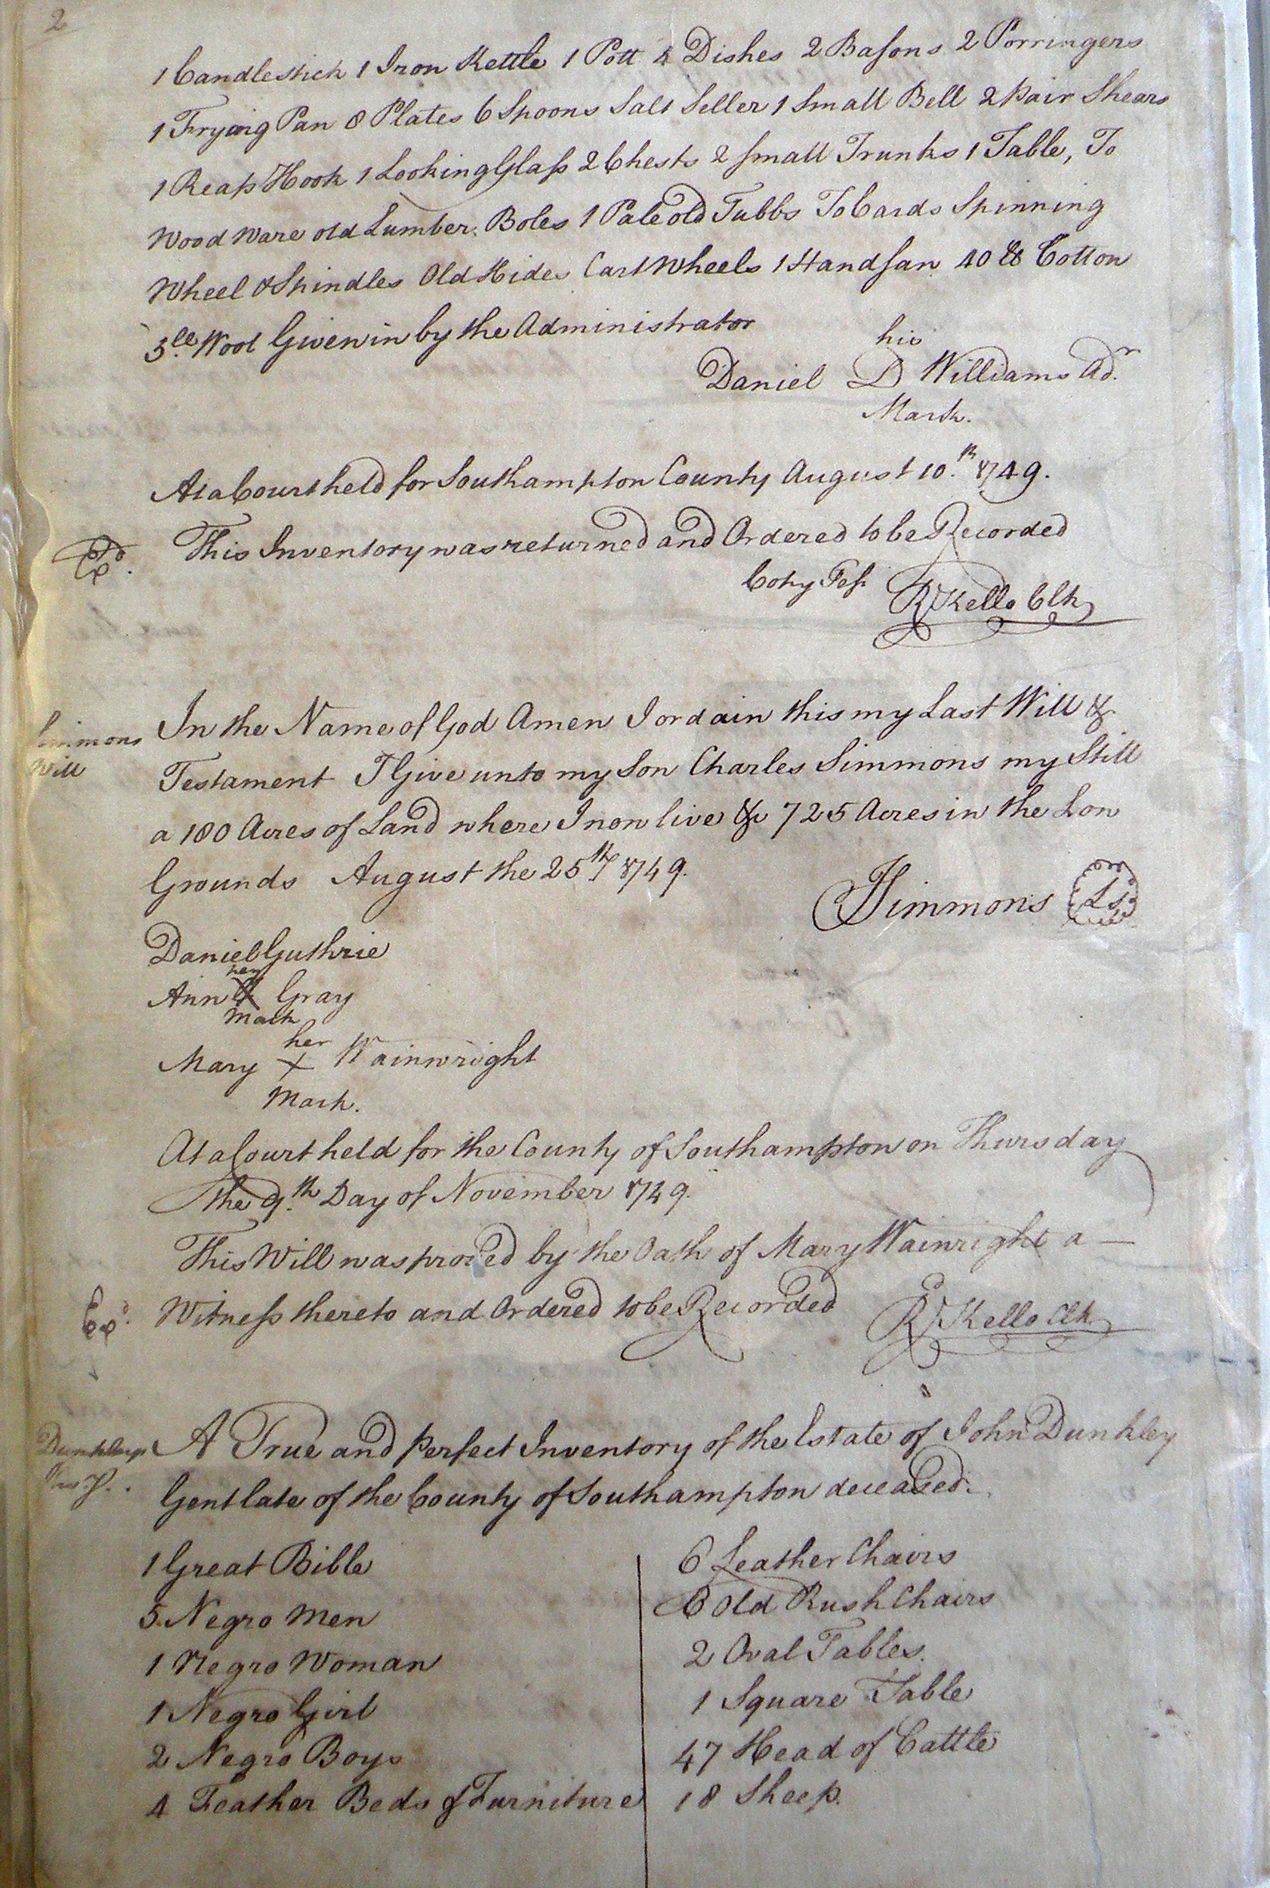 2
1 Candlestick 1 Iron Kettle 1 Pott 4 Dishes 2 Basons 2 Porringers
1 Frying Pan 8 Plates 6 Spoons Salt Seller 1 Small Bell 2 pair Shears
1 Reap Hook 1 Looking Glass 2 Chests 2 small Trunks 1 Table, To
Wood ware old Lumber. Boles 1 Pale old Tubbs To Cards Spinning
Wheel & Spindles Old Hides Cart Wheels 1 Handsan 40 lb Cotton
3 lb. Wool Given in by the Administrator
his
Daniel D Williams Adr.
Mark.
At a Court held for Southampton County August 10.th 1749.
This Inventory was returned and Ordered to be Recorded
Copy Test
R Kello Clk
Simmons
Will
In the Name of God Amen I ordain this my Last Will &
Testament I Give unto my Son Charles Simmons my Still
a 180 Acres of Land where I now live & 725 Acres in the Low
Grounds August the 25th 1749.
Simmons Ls
Daniel Guthrie
her
Ann Gray
mark
her
Mary X Wainwright
mark.
At a Court held for the County of Southampton on Thursday
the 9.th Day of November 1749.
This Will was proved by the Oath of Mary Wainright a
Witness thereto and Ordered to be Recorded
R Kello Clk
Dunkleys
Inv.y.
A True and Perfect Inventory of the Estate of John Dunkley
Gent late of the County of Southampton deceased.
1 Great Bible
5 Negro Men
1 Negro Woman
1 Negro Girl
2 Negro Boys
4 Feather Beds & Furniture
6 Leather Chairs
6 Old Rush Chairs
2 Oval Tables.
1 Square Table
47 Head of Cattle
18 Sheep.